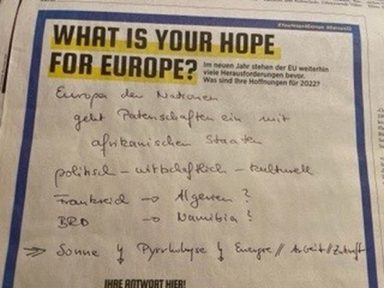 #YourHopeForEurope
WHAT IS YOUR HOPE
FOR EUROPE?
Im neuen Jahr stehen der EU weiterhin
viele Herausforderungen bevor.
Was sind Ihre Hoffnungen für 2022?
Europa der Nationen
geht Patenschaften ein mit
afrikanischen Staaten
politisch – wirtschaftlich – kulturell
Frankreich → Algerien ?
BRD → Namibia ?
⇒ Sonne ↯ Pyrrholyse ↯ Energie // Arbeit // Zukunft
IHRE ANTWORT HIER!